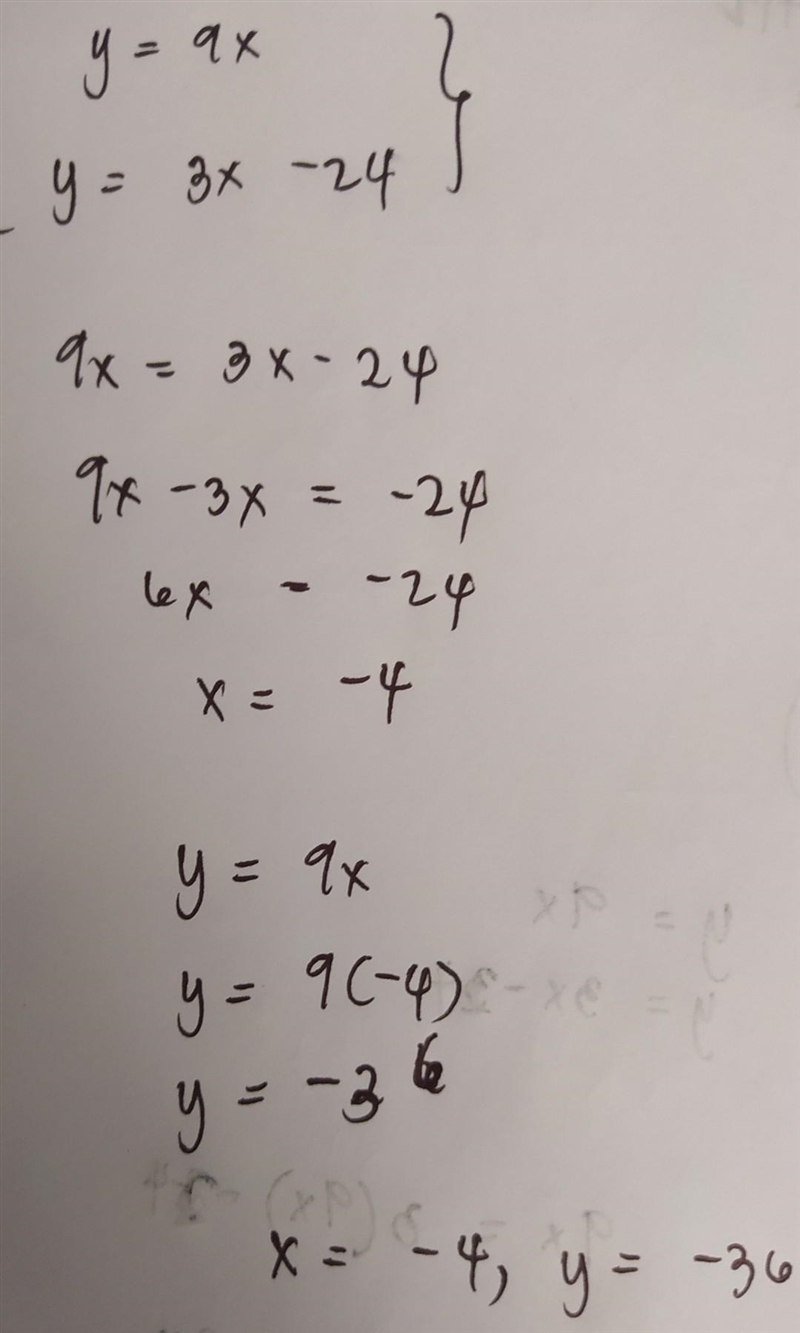 y = 9x
y = 3x - 24
9x = 3x - 24
9x - 3x = -24
6x - -24
x = -4
y = 9x
y = 9(-4)
y = -36
x = -4, y = -36